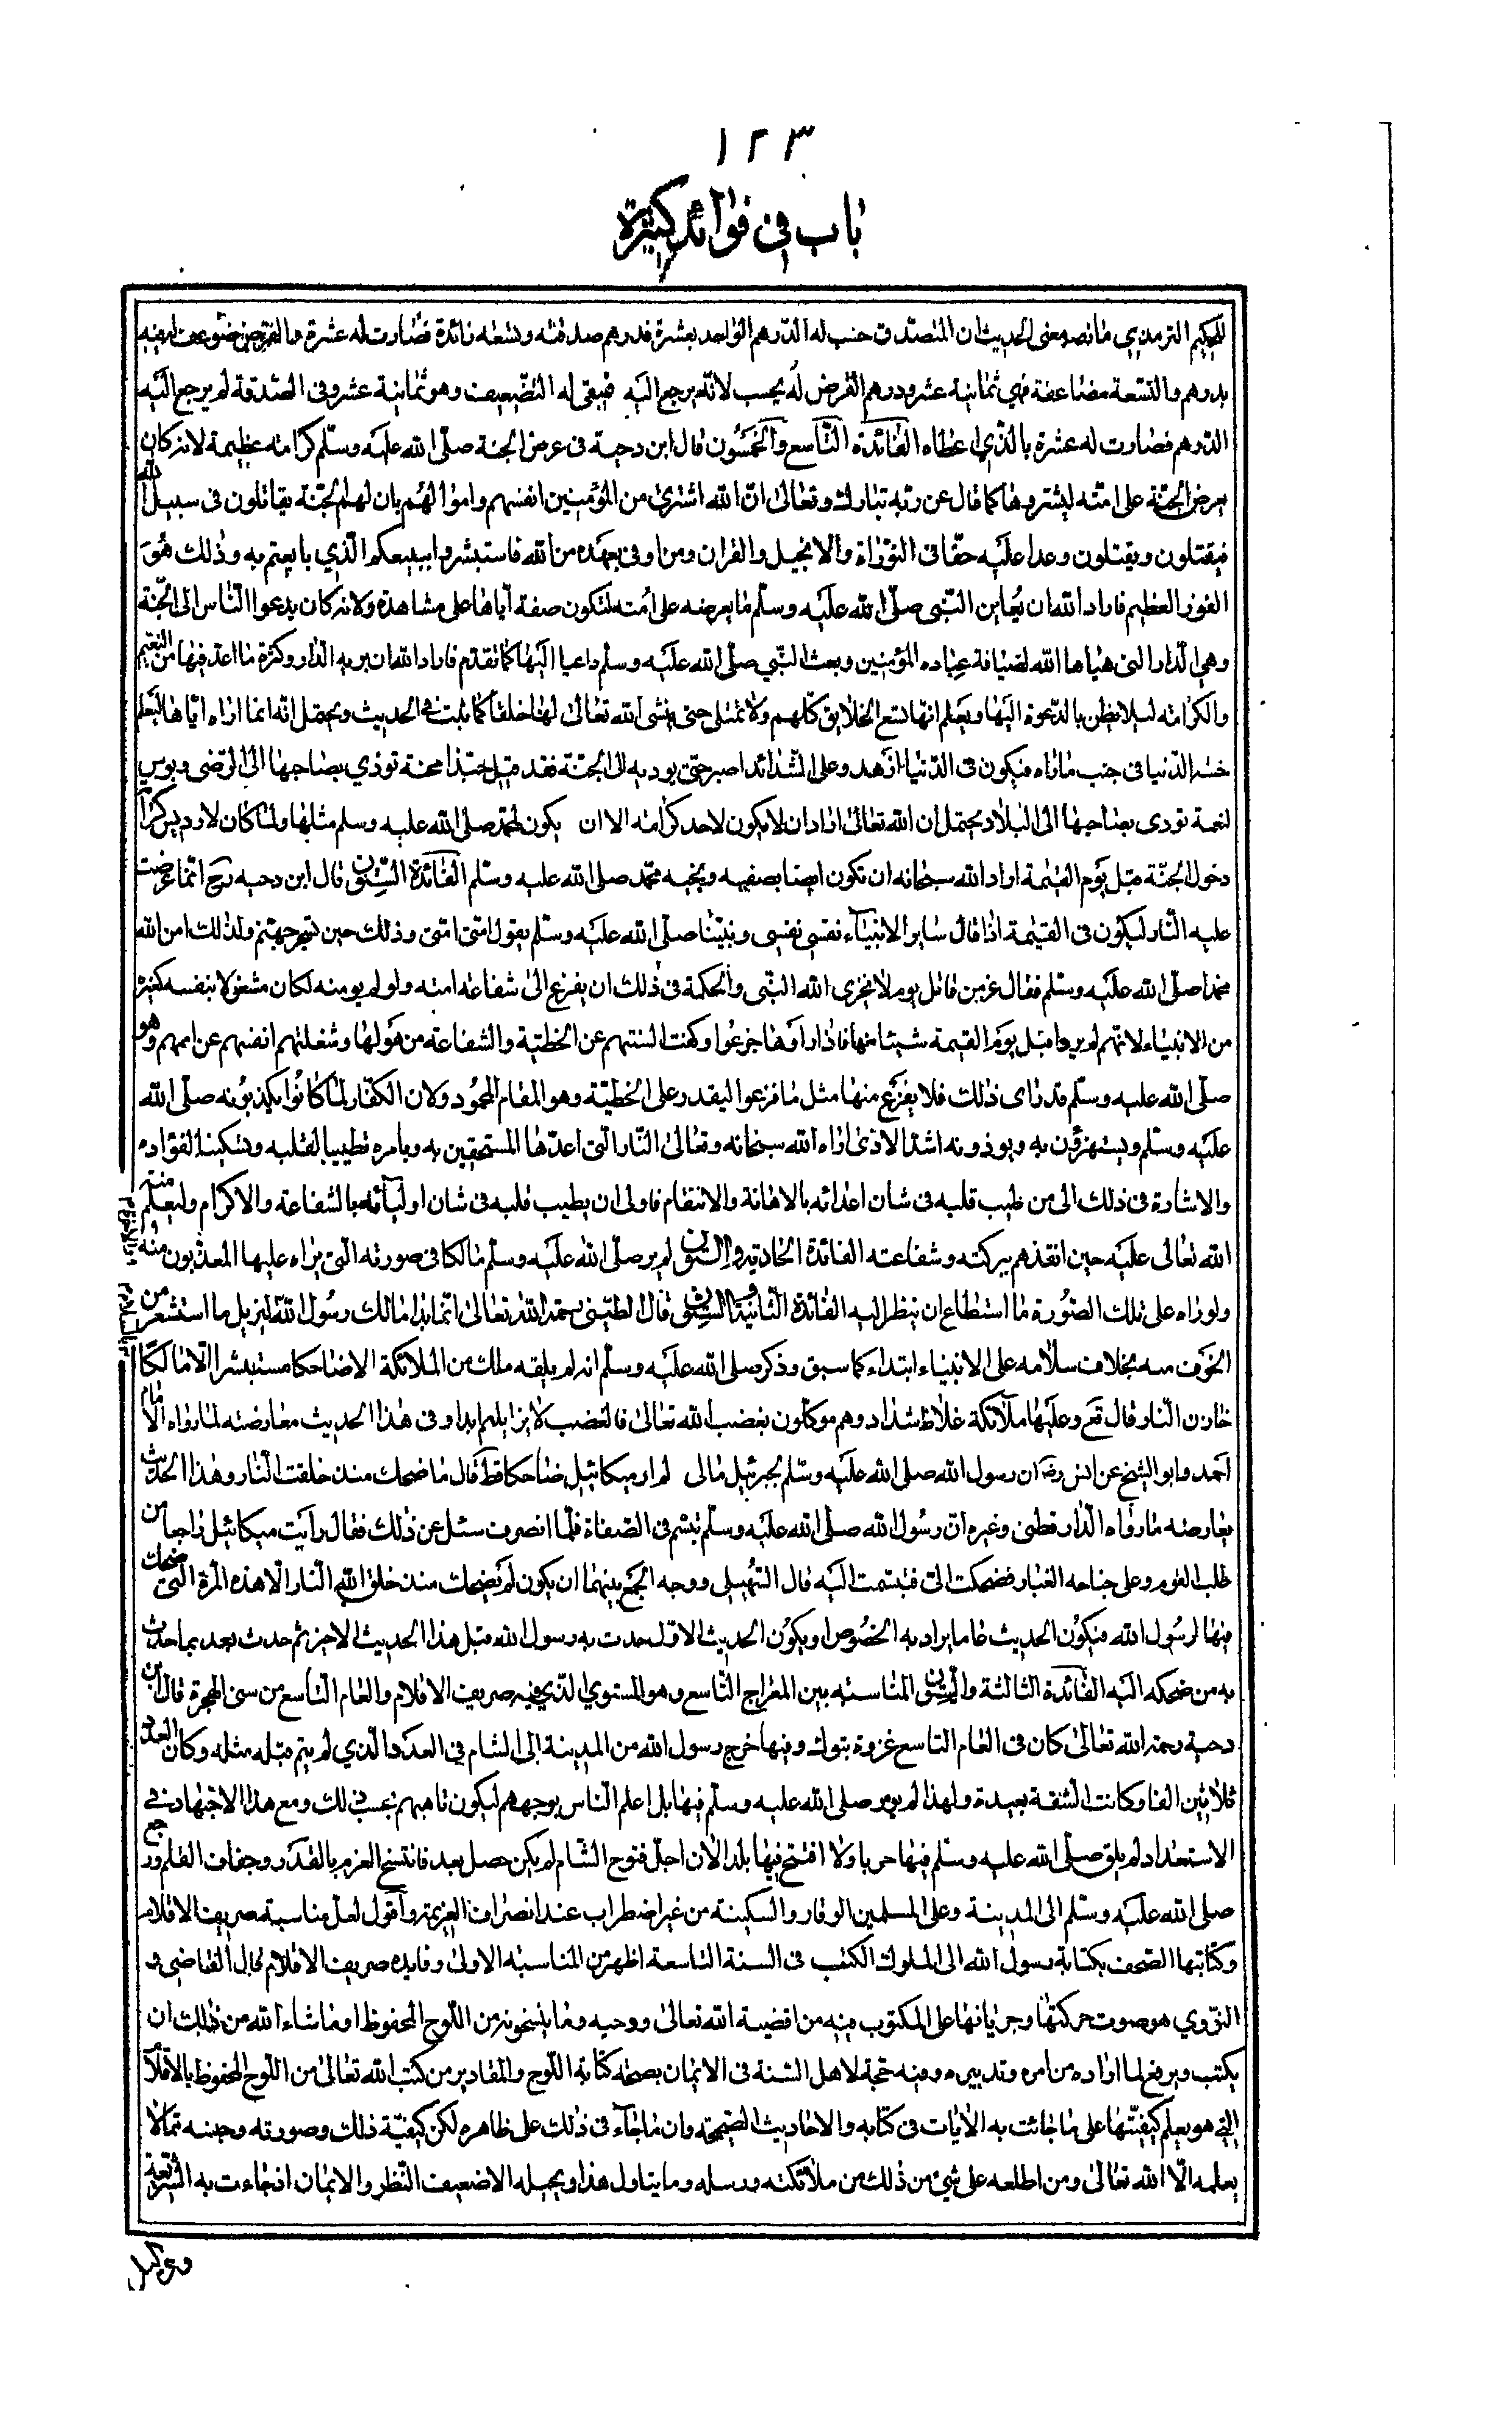 ١٢٣
باب في فوائد كثيرة
الحكيم الترمذي ما نصه معنى الحديث ان المتصدق حسب له الدرهم الواحد بعشرة فدرهم صدقته وتسعة زائدة فصارت له عشرة والقرض ضوعف له فيه
بدرهم والتسعة مضاعفة فهي ثمانية عشر ودرهم القرض له يحسب لانه يرجع اليه فبقى له التضعيف وهو ثمانية عشر وفى الصدقة لم يرجع اليه
الدرهم فصارت له عشرة بالذي اعطاه الفائدة التاسع والخمسون قال ابن دحية فى عرض الجنة صلى الله عليه وسلم كرامته عظيمة لانه كان
يعرض الجنة على امته ليشتروها كما قال عن ربه تبارك وتعالى ان الله اشترى من المؤمنين انفسهم واموالهم بان لهم الجنة يقاتلون فى سبيل الله
فيقتلون ويقتلون وعدا عليه حقا فى التوراة والانجيل والقران ومن اوفى بعهده من الله فاستبشروا ببيعكم الذي بايعتم به وذلك هو
الفوز العظيم فاراد الله ان يعاين النبى صلى الله عليه وسلم ما يعرضه على امته لتكون صفة اياها على مشاهدة ولانه كان يدعوا الناس الى الجنة
وهي الدار التى هياها الله لضيافة عباده المؤمنين وبعث النبي صلى الله عليه وسلم داعيا اليها كما تقدم فاراد الله ان يريه الدار وكثرة ما اعد فيها من النعيم
والكرامة ليلا يظن بالدعوة اليها ويعلم انها تسع الخلايق كلهم ولا تمتلى حتى ينشى الله تعالى لها خلقا كما ثبت في الحديث ويحتمل انه انما اراه اياها ليعلم
خسة الدنيا فى جنب ماراه فيكون فى الدنيا ازهد وعلى الشدائد اصبر حتى يوديه الى الجنة فقد قيل حبذا محنة تودي بصاحبها الى الرضى وبوس
لنعمة تودى بصاحبها الى البلاء ويحتمل ان الله تعالى اراد ان لا يكون لاحد كرامته الا ان يكون لمحمد صلى الله عليه وسلم مثلها ولما كان لادريس كرامة
دخول الجنة قبل يوم القيمة اراد الله سبحانه ان تكون ايضا بصفيه ونجيه محمد صلى الله عليه وسلم الفائدة الستون قال ابن دحيه رح انما عرضت
عليه النار ليكون فى القيمة اذا قال ساير الانبياء نفسى نفسى ونبينا صلى الله عليه وسلم يقول امتى امتى وذلك حين تسجر جهنم ولذلك امن الله
محمدا صلى الله عليه وسلم فقال عز من قائل يوم لا يخزى الله النبى والحكمة فى ذلك ان يفرغ الى شفاعة امته ولو لم يومنه لكان مشغولا بنفسه كغيره
من الانبياء لانهم لم يروا قبل يوم القيمة شيئا منها فاذا راوها جزعوا وكفت السنتهم عن الخطبة والشفاعة من هولها وشغلتهم انفسهم عن اممهم وهو
صلى الله عليه وسلم قد راى ذلك فلا يفزع منها مثل ما فزعوا ليقدر على الخطبة وهو المقام المحمود ولان الكفار لما كانوا يكذبونه صلى الله
عليه وسلم ويستهزؤن به ويوذونه اشد الاذى اراه الله سبحانه وتعالى النار التى اعدها المستحقين به وبامره تطييبا لقلبه وتسكينا لفؤاده
والاشارة فى ذلك الى من طيب قلبه فى شان اعدائه بالاهانة والانتقام فاولى ان يطيب قلبه فى شان اوليائه بالشفاعة والاكرام وليعلم منة
الله تعالى عليه حين انقذهم ببركته وشفاعته الفائدة الحادية والستون لم ير صلى الله عليه وسلم مالكا فى صورته التى يراه عليها المعذبون منه
ولو راه على تلك الصورة ما استطاع ان ينظر اليه الفائدة الثانية والستون قال الطيبى رحمه الله تعالى انما بدا مالك رسول الله ليزيل ما استشعر من
الخوف منه بخلاف سلامه على الانبياء ابتداء كما سبق وذكر صلى الله عليه وسلم انه لم يلقه ملك من الملائكة الا ضاحكا مستبشرا الا مالكا
خازن النار قال تع وعليها ملائكة غلاظ شداد وهم موكلون بغضب الله تعالى فالغضب لا يزايلهم ابدا وفى هذا الحديث معارضته لما رواه الامام
احمد وابو الشيخ عن انس رض ان رسول الله صلى الله عليه وسلم لجبرئيل مالى لم ار ميكائيل ضاحكا قط قال ما ضحك منذ خلقت النار وهذا الحديث
يعارضه مارواه الدار قطنى وغيره ان رسول الله صلى الله عليه وسلم تبسم فى الصلاة فلما انصرف سئل عن ذلك فقال رايت ميكائيل راجعا من
طلب القوم وعلى جناحه الغبار فضحكت الى فتبسمت اليه قال السهيلى ووجه الجمع بينهما ان يكون لم يضحك منذ خلق الله النار الا هذه المرة التى ضحك
فيها لرسول الله فيكون الحديث عاما يراد به الخصوص او يكون الحديث الاول حدث به رسول الله قبل هذا الحديث الاخير ثم حدث بعد بما حدث
به من ضحكه اليه الفائدة الثالثة والستون المناسبة بين المعراج التاسع وهو المستوي الذي فيه صريف الاقلام والعام التاسع من سنى الهجرة قال ابن
دحية رحمه الله تعالى كان فى العام التاسع غزوة تبوك وفيها خرج رسول الله من المدينة الى الشام في العدد الذي لم يتم قبله مثله وكان العدد
ثلاثين الفا وكانت الشقة بعيدة ولهذا لم يور صلى الله عليه وسلم فيها بل اعلم الناس بوجههم ليكون تاهبهم بحسب ذلك ومع هذا الاجتهاد في
الاستعداد لم يلق صلى الله عليه وسلم فيها حربا ولا افتتح فيها بلدا لان اجل فتوح الشام لم يكن حصل بعد فانتسخ العزم بالقدر وجفاف القلم ورجع
صلى الله عليه وسلم الى المدينة وعلى المسلمين الوقار والسكينة من غير اضطراب عند انصراف العزيمة واقول لعل مناسبة صريف الاقلام
وكتابتها الصحف بكتابة رسول الله الى الملوك الكتب فى السنة التاسعة اظهر من المناسبة الاولى وفايده صريف الاقلام قال القاضى و
النووي هو صوت حركتها وجريانها على المكتوب فيه من اقضية الله تعالى ووحيه وما ينسخونه من اللوح المحفوظ او ما شاء الله من ذلك ان
يكتب ويرفع لما اراده من امره وتدبيره وفيه حجة لاهل السنة فى الايمان بصحة كتابة اللوح والمقادير من كتب الله تعالى من اللوح المحفوظ بالاقلام
التي هو يعلم كيفيتها على ما جائت به الايات فى كتابه والاحاديث الصحيحة وان ما جاء فى ذلك على ظاهره لكن كيفية ذلك وصورته وجنسه مما لا
يعلمه الا الله تعالى ومن اطلعه على شئ من ذلك من ملائكته ورسله وما يتاول هذا ويحيله الا ضعيف النظر والايمان اذ جاءت به الشريعة